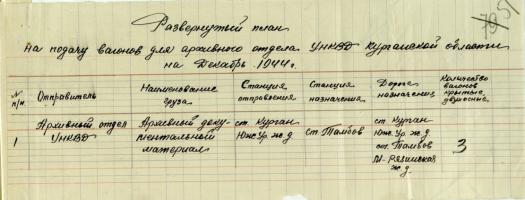 Развернутый план
На подачу вагонов для архивного отдела УНКВД Курганской области
на Декабрь 1944 г.
№ п/н
Отправитель
Наименование груза
Станция отправления
Станция назначения
Дорога назначения
Количество вагонов крытые, двухосные
1
Архивный отдел УНКВД
Архивный документальный материал
ст. Курган Юж. Ур. ж. д.
ст. Тамбов
ст. Курган Юж. Ур. ж. д. ст. Тамбов М-Рязанская ж. д.
3